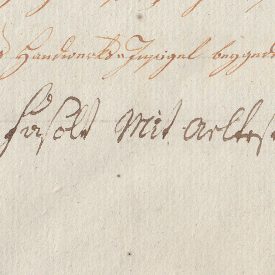 Handwerks Insigel beygedr
Hasolt Mit aeltest